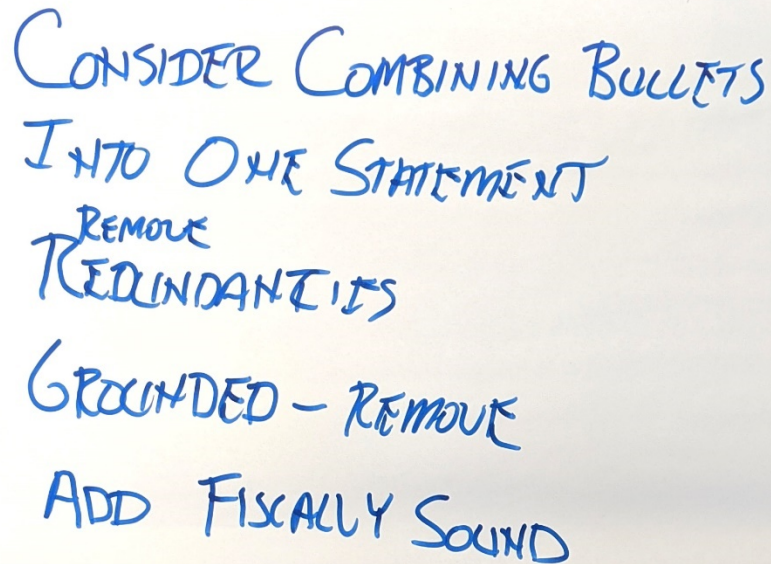 CONSIDER COMBINING BULLETS
INTO ONE STATEMENT
REMOVE
REDUNDANTIES
GROUNDED - REMOVE
ADD FISCALLY SOUND